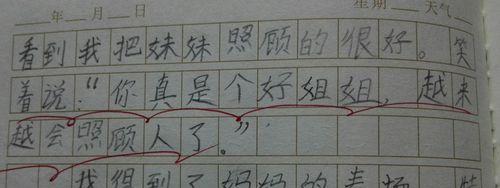 年 月 日 星期 天气
看到我把妹妹照顾的很好。笑
着说:“你真是个好姐姐,越来
越会照顾人了。”
我得到了妈妈的表扬